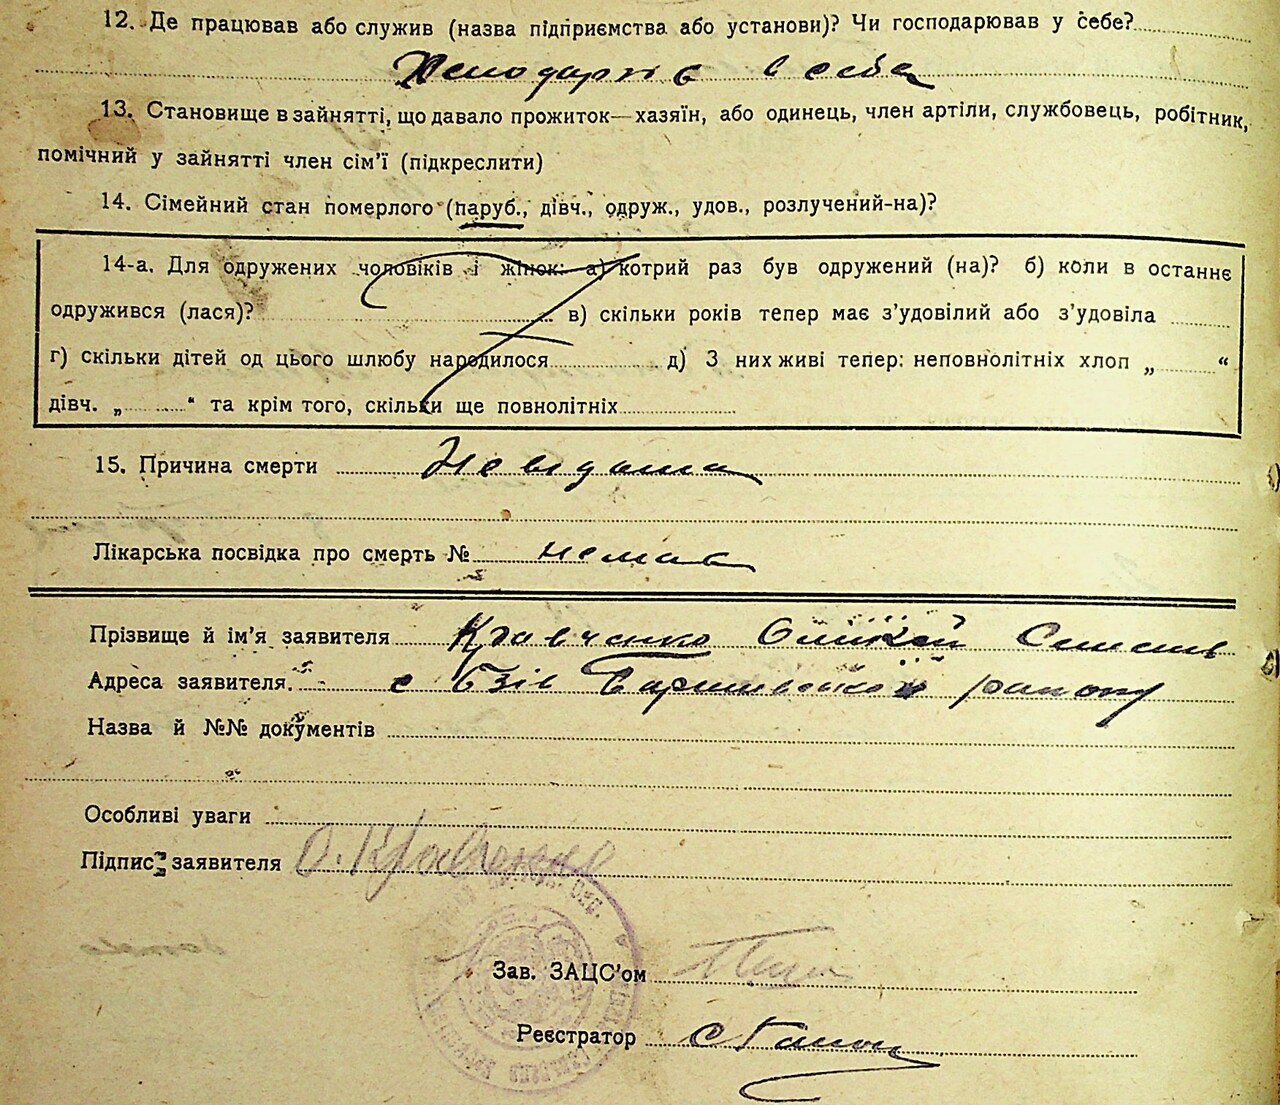 12. Де працював або служив (назва підприємства або установи)? Чи господарював у себе?
в себе
13. Становище в зайнятті, що давало прожиток—хазяїн, або одинець, член артіли, службовець, робітник,
помічний у зайнятті член сім'ї (підкреслити)
14. Сімейний стан померлого (паруб., дівч., одруж., удов., розлучений-на)?
14-а. Для одружених чоловіків і жінок: а) котрий раз був одружений (на)? б) коли в останнє
одружився (лася)? в) скільки років тепер має з'удовілий або з'удовіла
г) скільки дітей од цього шлюбу народилося д) З них живі тепер: неповнолітніх хлоп „ “
дівч. „ “ та крім того, скільки ще повнолітніх
15. Причина смерти Невідома
Лікарська посвідка про смерть № немає
Прізвище й ім'я заявителя Кравченко
Адреса заявителя. с Бзів Баришівського району
Назва й №№ документів
Особливі уваги
Підпис заявителя О. Кравченко
Зав. ЗАЦС'ом
Реєстратор